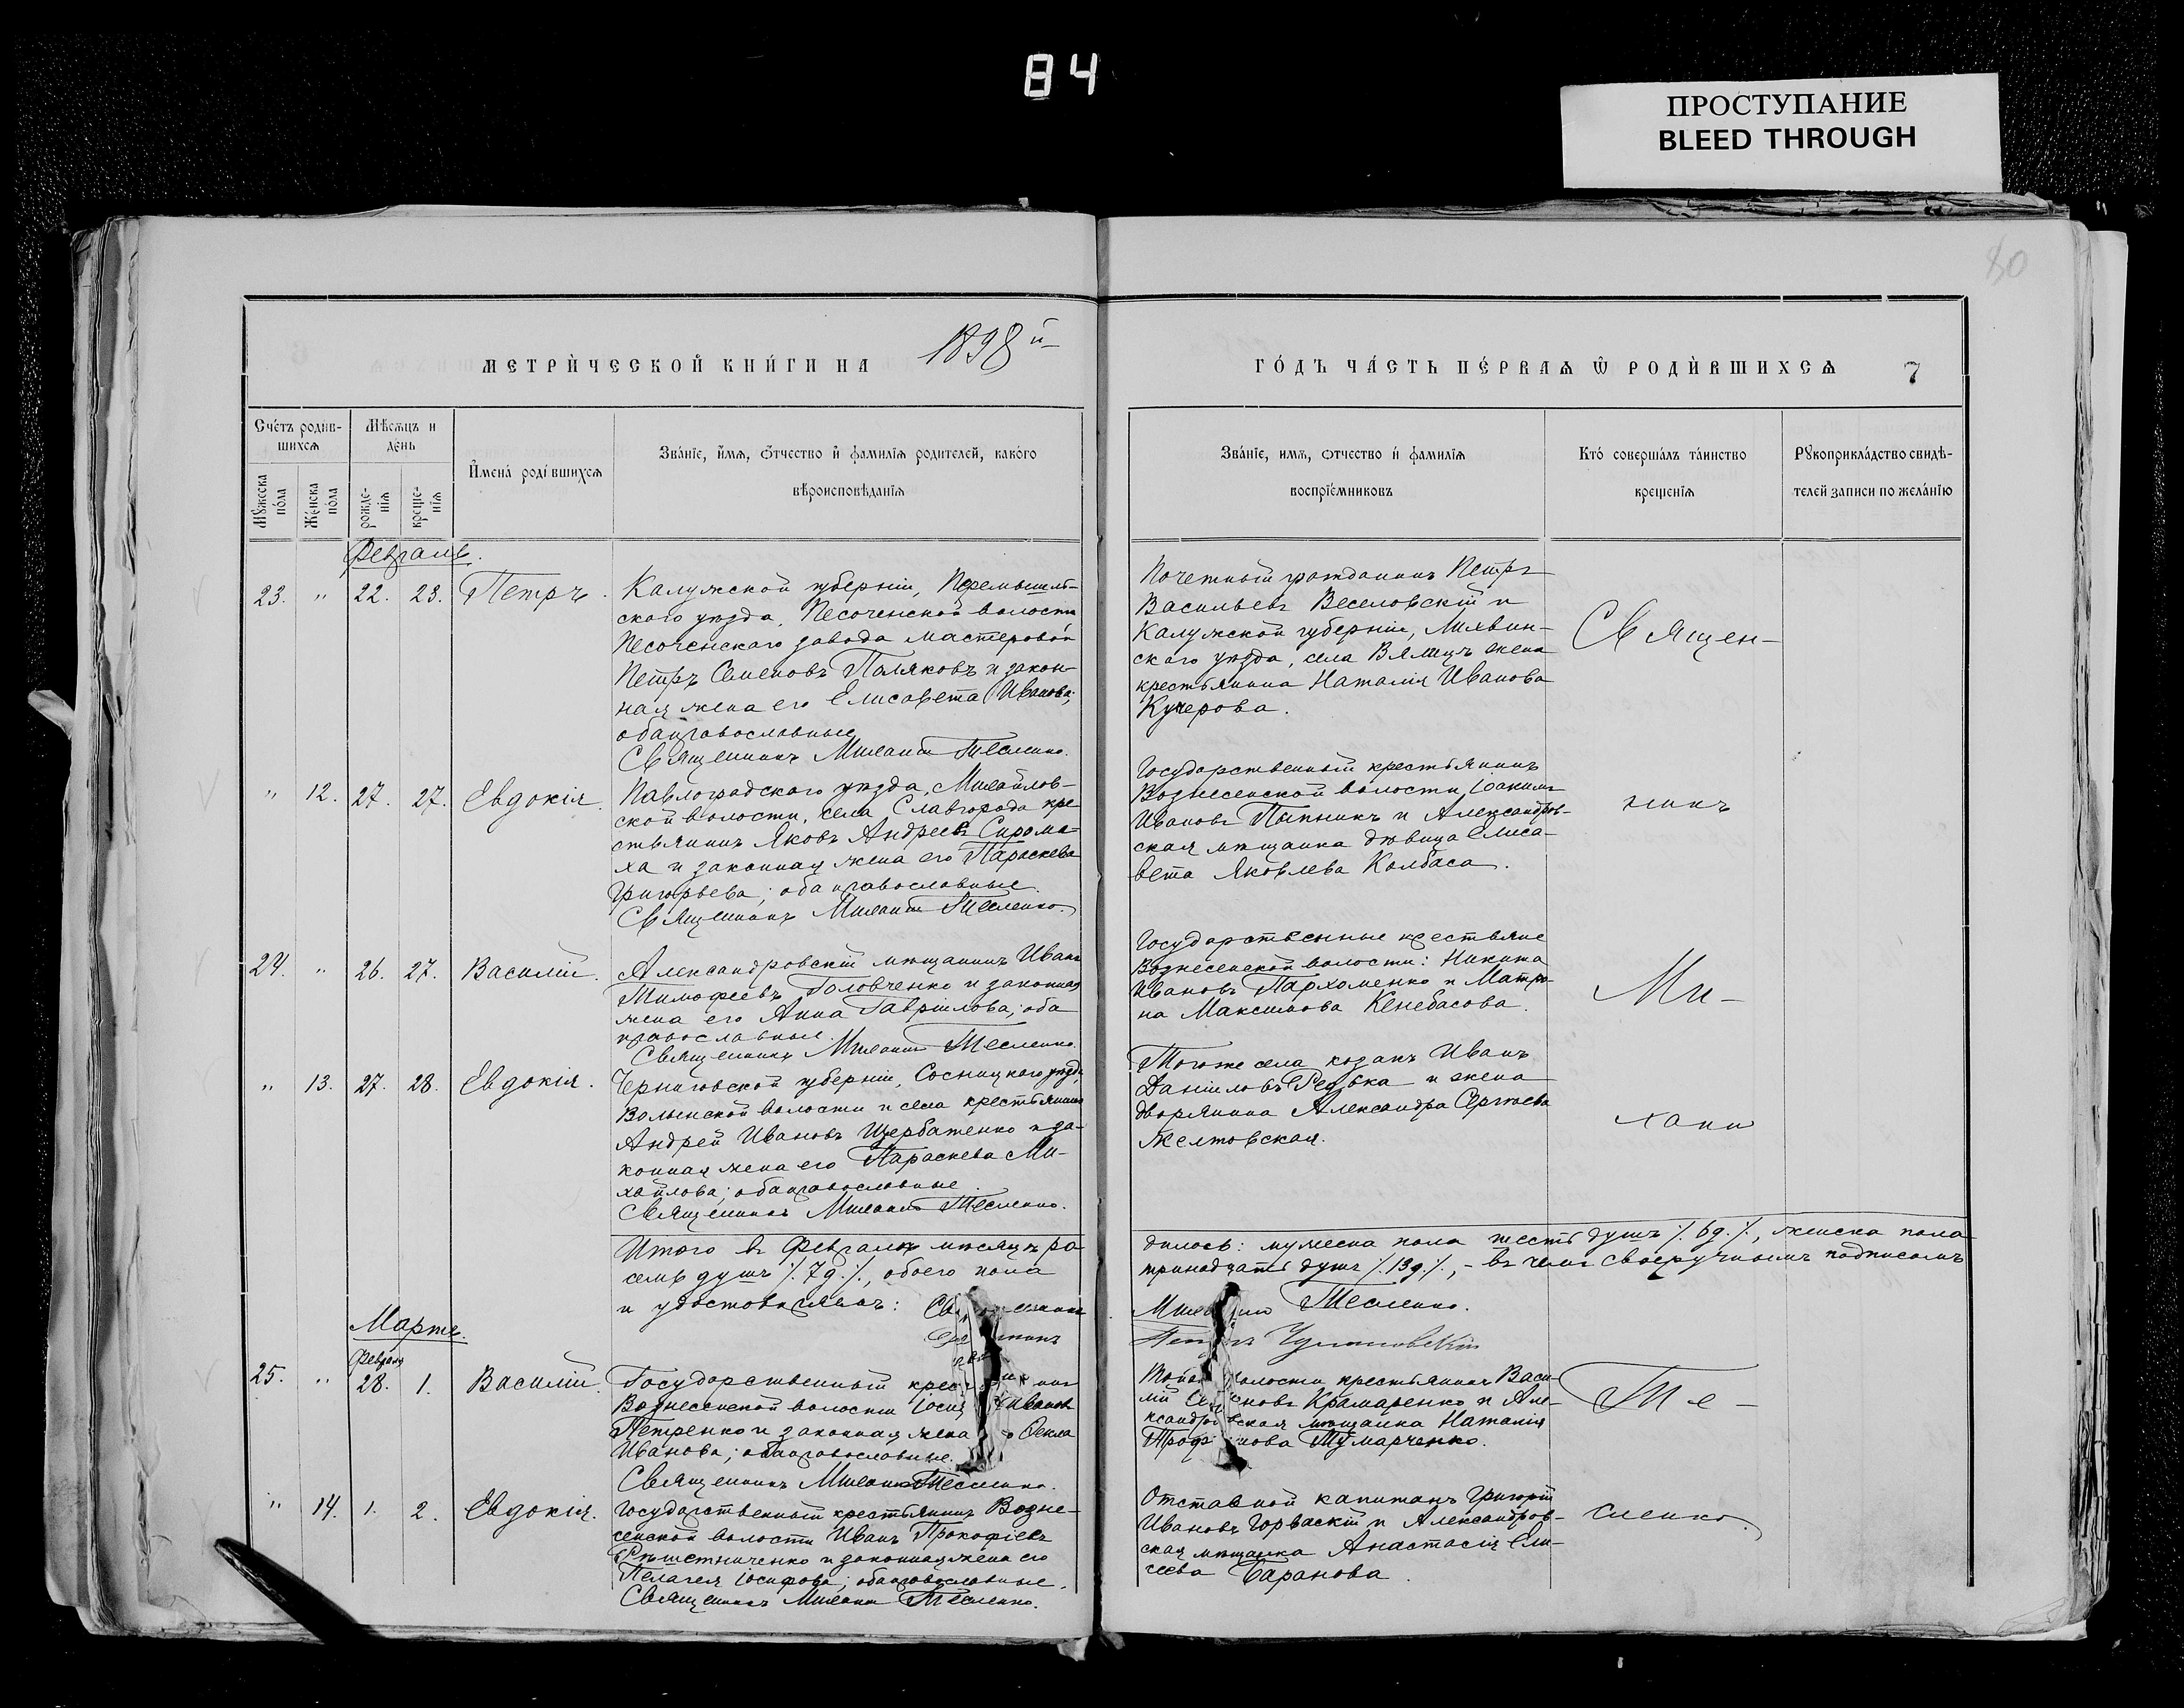 84
ПРОСТУПАНИЕ
BLEED THROUGH
80
МЕТРИ́ЧЕСКОЙ КНИ́ГИ НА 1898й
ГО́ДЪ ЧА́СТЬ ПЕ́РВАѦ Ѿ РОДИ́ВШИХСѦ 7
Сче́тъ роди́в-
шихсѧ
Мѣ́сѧцъ и
де́нь
Мꙋ́жеска
по́ла
Же́нска
по́ла
рожде-
нїѧ
креще-
нїѧ
И҆мена̀ роди́вшихсѧ
Зва́нїе, и҆́мѧ, ѻ҆́тчество и҆ фамилїѧ роди́телей, како́го
вѣроисповѣ́данїѧ
Зва́нїе, имѧ, ѻтчество и҆ фамилїѧ
воспрїе́мниковъ
Кто̀ соверша́лъ та́инство
креще́нїѧ
Рꙋкоприкла́дство свидѣ́-
телей записи по жела́нїю
Февраль.
23. " 22. 23. Петръ.
Калужской губерніи, Перемышль-
скаго уѣзда, Песоченской волости
Песоченскаго завода мастеровой
Петръ Семеновъ Поляковъ и закон-
ная жена его Елисавета Иванова;
оба православные
Священникъ Михаилъ Тесленко.
Почетный гражданинъ Петръ
Васильевъ Веселовскій и
Калужской губерніи, Лихвин-
скаго уѣзда, села Вялицъ жена
крестьянина Наталія Иванова
Кучерова.
Священ-
" 12. 27. 27. Евдокія.
Павлоградскаго уѣзда, Михайлов-
ской волости, села Славгорода кре
стьянинъ Яковъ Андреевъ Сирома-
ха и законная жена его Параскева
Григорьева; оба православные.
Священникъ Михаилъ Тесленко.
Государственный крестьянинъ
Вознесенской волости Іоакимъ
Ивановъ Пытникъ и Александров-
ская мѣщанка дѣвица Елиса-
вета Яковлева Колбаса.
никъ
24. " 26. 27. Василій.
Александровскій мѣщанинъ Иванъ
Тимофеевъ Головченко и законная
жена его Анна Гавріилова; оба
православные.
Священникъ Михаилъ Тесленко.
Государственные крестьяне
Вознесенской волости: Никита
Ивановъ Пархоменко и Матро-
на Максимова Кенебасова.
Ми-
" 13. 27. 28. Евдокія.
Черниговской губерніи, Сосницкаго уѣзда,
Волынской волости и села крестьянинъ
Андрей Ивановъ Щербатенко и за-
конная жена его Параскева Ми-
хайлова; оба православные.
Священникъ Михаилъ Тесленко.
Того же села козакъ Иванъ
Даніиловъ Редька и жена
дворянина Александра Сергѣева
Желтовская.
хаилъ
Итого въ Февралѣ мѣсяцѣ ро
дилось: мужеска пола шесть душъ /. 6д. /., женска пола
семь душъ /. 7д. /., обоего пола
тринадцать душъ /. 13д. /., - въ чемъ своеручнымъ подписомъ
и удостовѣряемъ: Священникъ
Михаилъ Тесленко.
Мартъ.
Февраля
25. " 28. 1. Василій.
Государственный крестьянинъ
Вознесенской волости Іосифъ Ивановъ
Петренко и законная жена его Ѳекла
Иванова; оба православные.
Священникъ Михаилъ Тесленко.
Той волости крестьянинъ Васи-
лій Семеновъ Крамаренко и Але-
ксандровская мѣщанка Наталія
Трофимова Тумарченко.
Те-
" 14. 1. 2. Евдокія.
Государственный крестьянинъ Возне-
сенской волости Иванъ Прокофіевъ
Рѣшетниченко и законная жена его
Пелагея Іосифова; оба православные.
Священникъ Михаилъ Тесленко.
Отставной капитанъ Григорій
Ивановъ Горваскій и Александров-
ская мѣщанка Анастасія Ели-
сеева Баранова.
сленко.